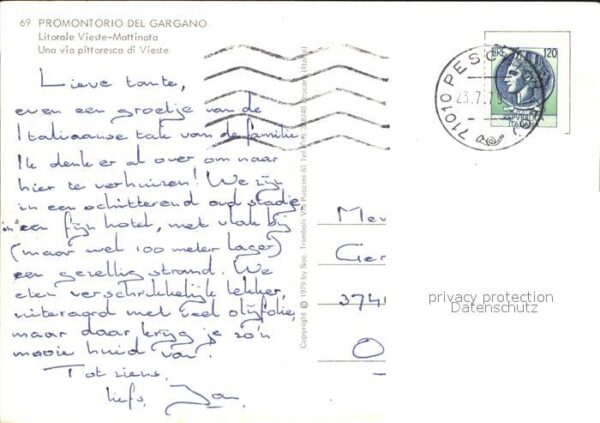 69 PROMONTORIO DEL GARGANO
Litorale Vieste-Mattinata
Una via pittoresca di Vieste
Lieve tante,
even een groetje van de
Italiaanse tak van de familie
Ik denk er al over om naar
hier te verhuizen! We zijn
in een schitterend oud stadje
in 'een fijn hotel, met vlak bij
(maar wel 100 meter lager)
een gezellig strand. We
eten verschrikkelijk lekker,
uiteraard met veel olijfolie,
maar daar krijg je zo'n
mooie huid van!
Tot ziens,
liefs, Jan
Copyright © 1979 by Soc. Trimboli Via Puccini 61
LIRE 120
71010 PESCHICI
23.7.79
Mev
Ger
3741
O
privacy protection
Datenschutz